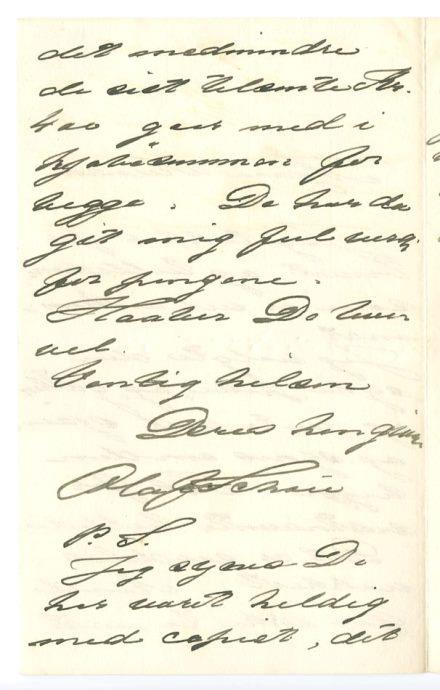 det medmindre
de sist tilsendte Kr.
400 gaar med i
kjøbesummen for
begge. De har da
git mig ful verdi
for pengene.
Haaber De lever
vel.
Venlig hilsen
Deres hengivne
Olaf Schou
P.S.
Jeg synes De
har været heldig
med copiet, det